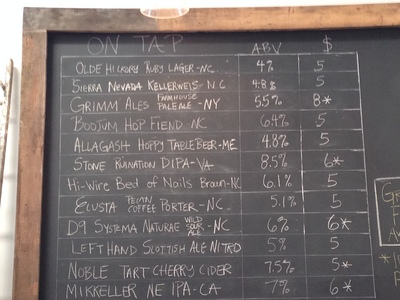 ON TAP ABV $
OLDE HICKORY RUBY LAGER-NC 4% 5
SIERRA NEVADA KELLERWEIS-NC 4.8% 5
GRIMM ALES FARMHOUSE PALE ALE -NY 5.5% 8*
BOOJUM HOP FIEND NC 6.4% 5
ALLAGASH HOPPY TABLE BEER-ME 4.8% 5
STONE RUINATION DIPA-VA 8.5% 6*
Hi-WIRE BED OF NAILS BROWN-NC 6.1% 5
ECUSTA PECAN COFFEE PORTER-NC 5.1% 5
D9 SYSTEMA NATURAE WILD SOUR ALE -NC 6% 6*
LEFT HAND SCOTTISH ALE NITRO 5% 5
NOBLE TART CHERRY CIDER 7.5% 5*
MIKKELLER NE IPA-CA 7% 6*